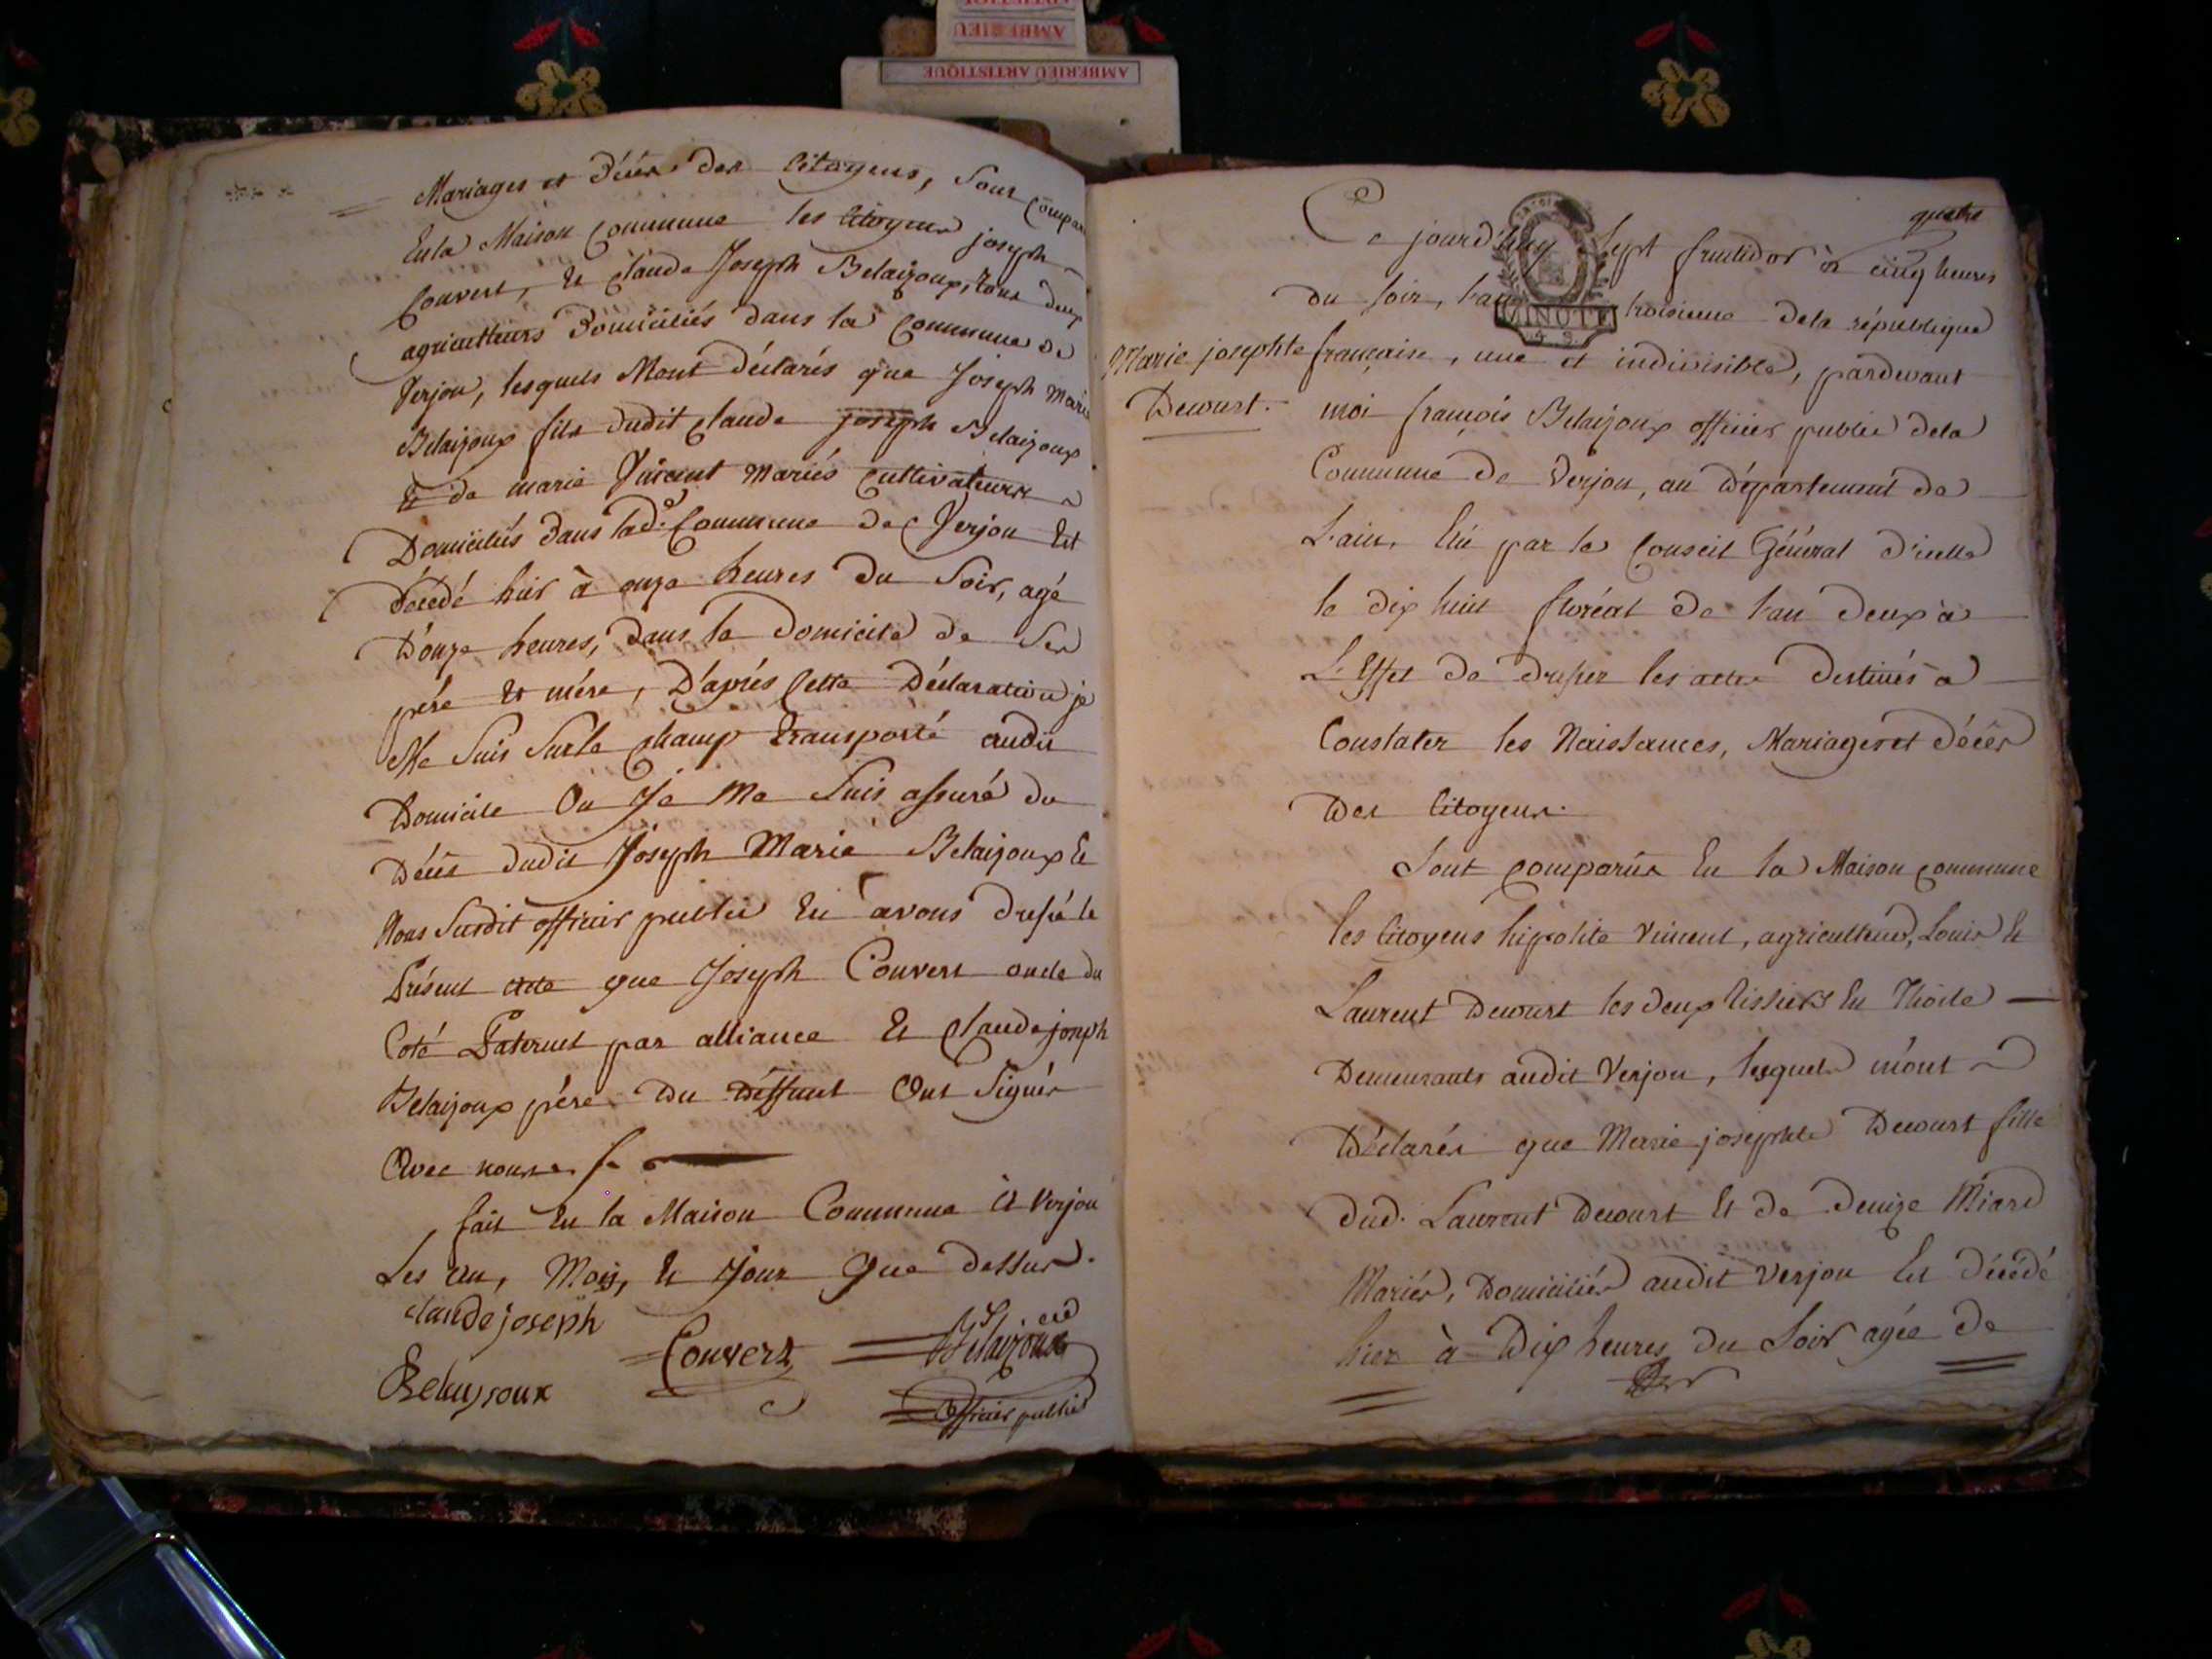 AMBERIEU
AMBERIEU ARTISTIQUE
Mariages et Décès des Citoyens, Sont Compar
En la Maison Commune les Citoyens joseph
Convert, Et Claude Joseph Belaizoux, tous deux
agriculteurs Domiciliés dans la Commune de
Verjon, lesquels M'ont déclarés que Joseph Marie
Belaizoux fils dudit Claude joseph Belaizoux
Et de marie Vincent Mariés Cultivateurs
Domiciliés Dans lad.e Commune de Verjon Est
décédé hier à onze heures du Soir, agé
D'onze heures, Dans le Domicile de Ses
pére Et mére, D'aprés Cette Déclaration je
Me Suis Sur le Champ transporté audit
Domicile Ou Je Me Suis assuré du
Décès dudit Joseph Marie Belaizoux Et
Nous Susdit officier public En avons dressé le
Présent acte que Joseph Convert oncle du
Coté Paternel par alliance Et Claude joseph
Belaizoux pére Du déffunt Ont Signés
Avec nous
fait En la Maison Commune à Verjon
Les an, Mois, Et Jour Que dessus.
claude joseph
Belaysoux
Convert
Belaizoux
officier public
quatre
Ce jourd'huy Sept fructidor à cinq heures
du soir, l'an troisieme de la république
MINUTE
Marie josephte
Decourt.
française, une et indivisible, pardevant
moi françois Belaizoux officier public de la
Commune de Verjon, au Département de
L'ain, Elû par le Conseil Général d'icelle
le dix huit floréal de l'an deux à
L'Effet de dresser les actes destinés à
Constater les Naissances, Mariages et décès
Des Citoyens.
Sont Comparûs En la Maison Commune
les Citoyens hipolite Vincent, agriculteur, Louis Et
Laurent Decourt les deux tissiers En Thoile
Demeurants audit Verjon, lesquels m'ont
Déclarés que Marie josephte Decourt fille
dud. Laurent Decourt Et de Denize Miard
Mariés, Domiciliés audit Verjon Est décédé
hier à Dix heures du Soir agée de